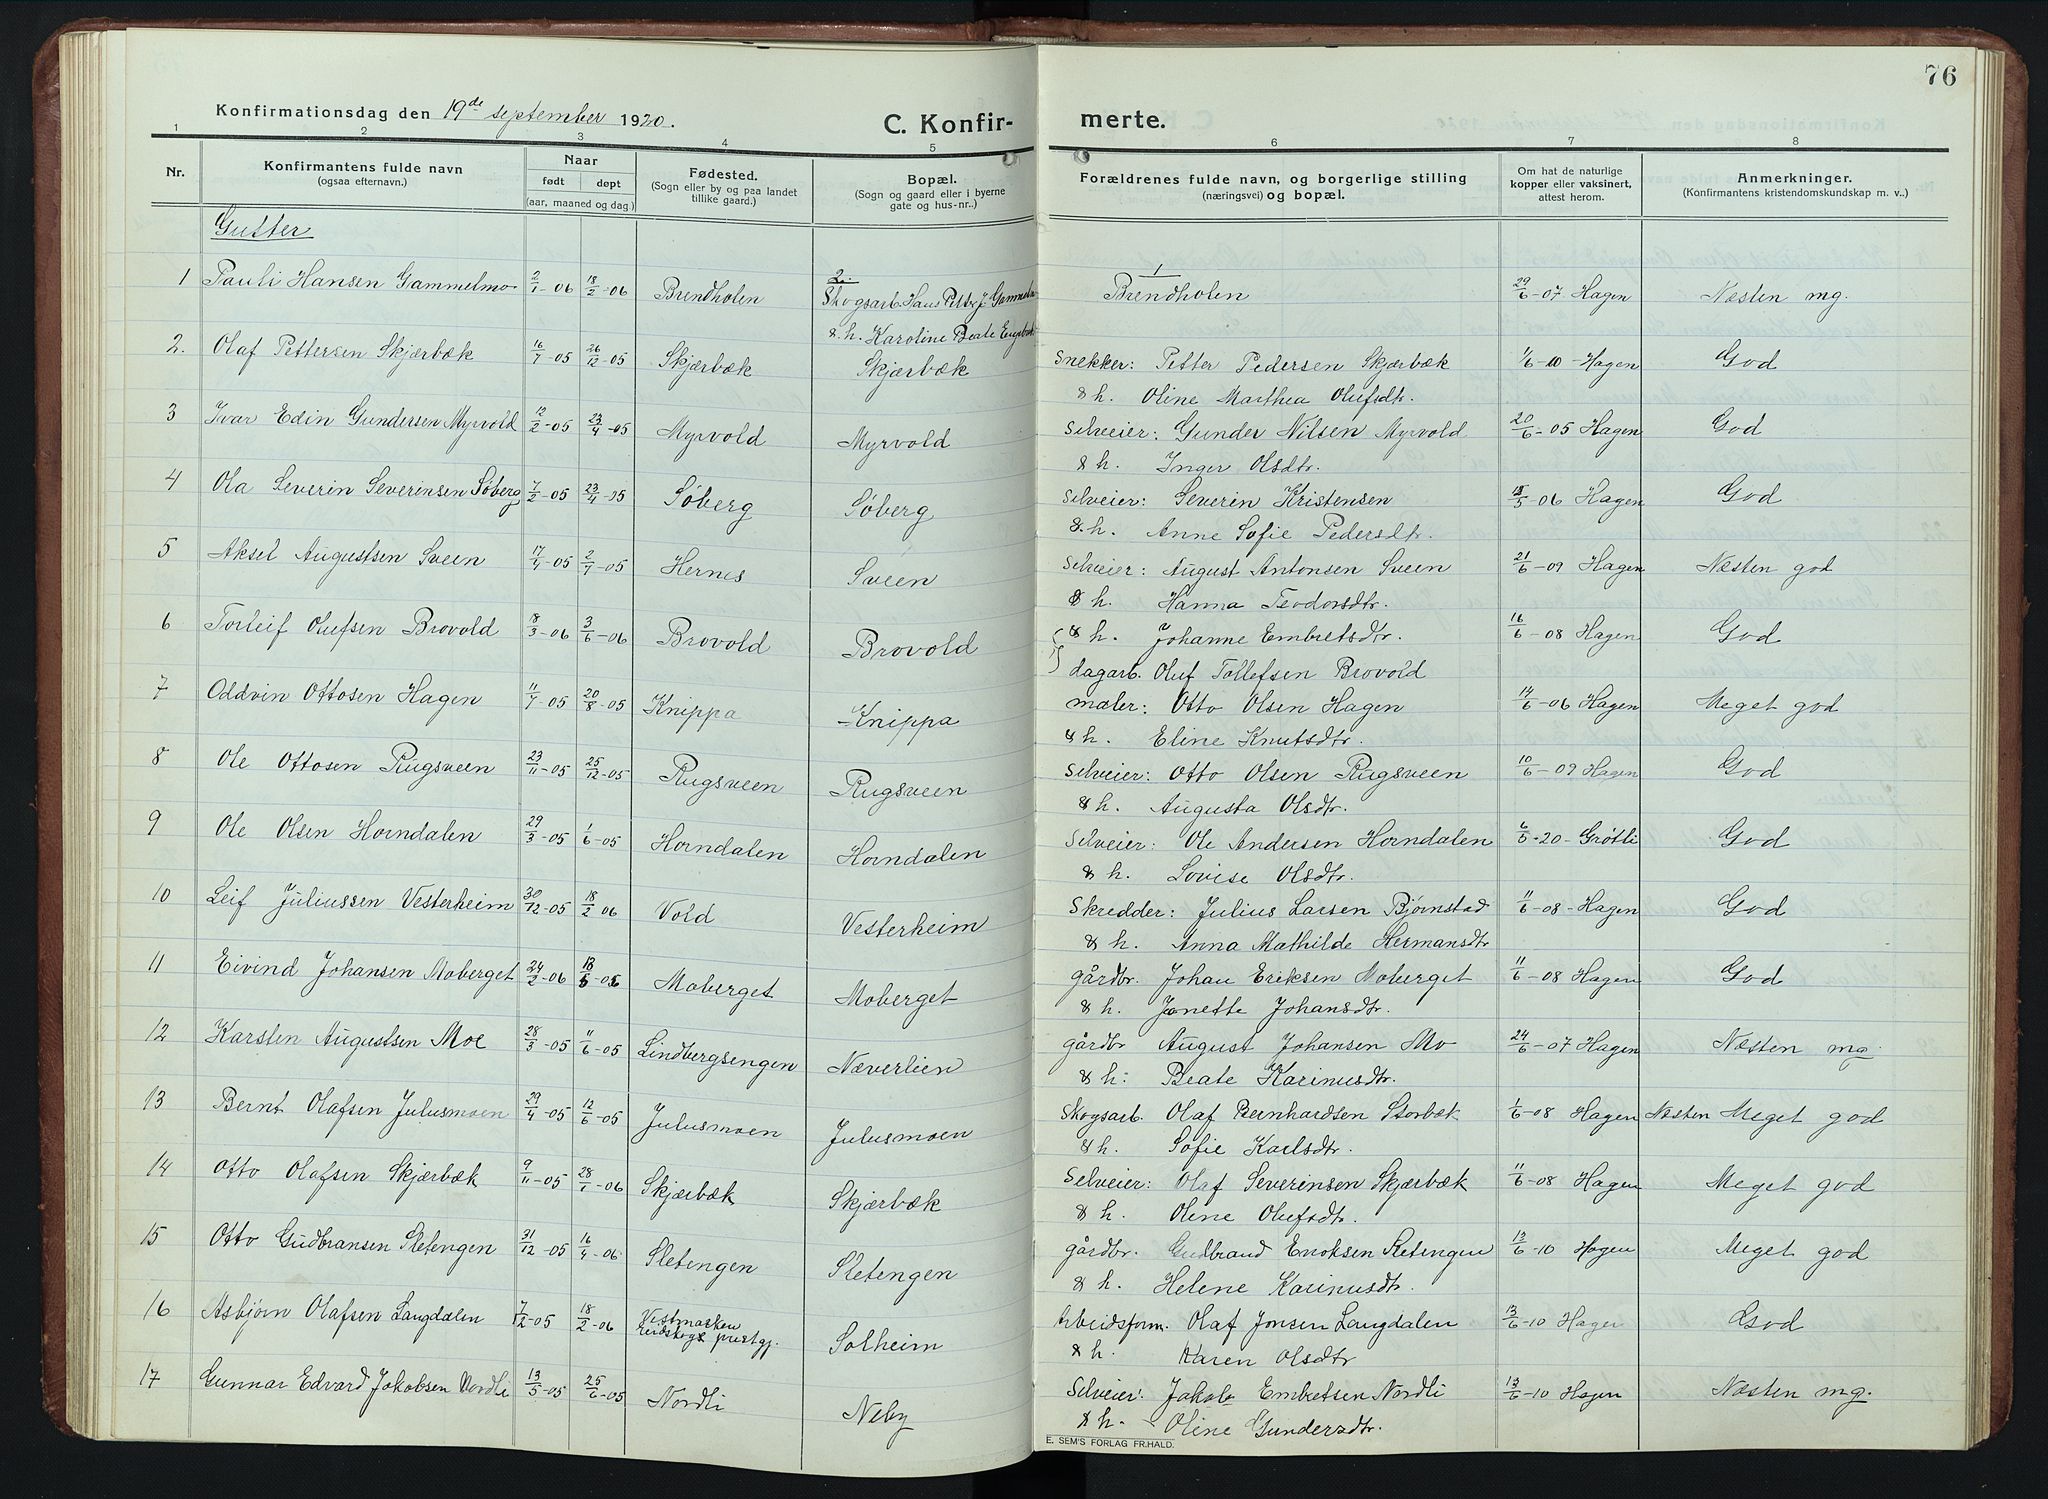 76
Konfirmationsdag den 19de september 1920.
C. Konfirmerte.
1 2 3 4 5 6 7 8
Nr.
Konfirmantens fulde navn
(ogsaa efternavn.)
Naar
født døpt
(aar, maaned og dag.)
Fødested.
(Sogn eller by og paa landet
tillike gaard.)
Bopæl.
(Sogn og gaard eller i byerne
gate og hus-nr..)
Forældrenes fulde navn, og borgerlige stilling
(næringsvei) og bopæl.
Om hat de naturlige
kopper eller vaksinert,
attest herom.
Anmerkninger.
(Konfirmantens kristendomskundskap m. v..)
Gutter
1 Pauli Hansen Gammelmo 2/1-06 18/2-06 Brendholen 2. Skogsarb. Hans Petter J. 1 Brendholen 29/6-07 Hagen Næsten mg.
& h. Karoline Beate
2. Olaf Pettersen Skjærbæk 16/7-05 26/12-05 Skjærbæk Skjærbæk Snekker: Petter Pedersen Skjærbæk 1/6-10-Hagen God
& h. Oline Marthea Olufsdtr.
3 Ivar Edin Gundersen Myrvold 12/2-05 23/4-05 Myrvold Myrvold Selveier: Gunder Nilsen Myrvold 20/6-05 Hagen God
& h. Inger Olsdtr.
4 Ola Severin Severinsen Søberg 7/2-05 23/4-05 Søberg Søberg Selveier: Severin Kristensen 18/5-06 Hagen God
& h. Anne Sofie Pedersdtr.
5 Aksel Augustsen Sveen 17/4-05 2/7-05 Hernes Sveen Selveier: August Antonsen Sveen 21/6-09 Hagen Næsten god
& h. Hanna Teodorsdtr.
6 Torleif Olufsen Brovold 18/3-06 3/6-06 Brovold Brovold & h. Johanne Embretsdtr. 16/6-08 Hagen God
dagarb. Oluf Tollefsen Brovold
7 Oddvin Ottosen Hagen 11/7-05 20/8-05 Knippa Knippa maler: Otto Olsen Hagen 14/6-06 Hagen Meget god
& h. Eline Knutsdtr.
8 Ole Ottosen Rugsveen 23/11-05 25/12-05 Rugsveen Rugsveen Selveier: Otto Olsen Rugsveen 10/6-09 Hagen God
& h. Augusta Olsdtr.
9 Ole Olsen Horndalen 29/3-05 1/6-05 Horndalen Horndalen Selveier: Ole Andersen Horndalen 6/5-20-Grøtli God
& h. Lovise Olsdtr.
10 Leif Juliussen Vesterheim 30/12-05 18/2 06 Vold Vesterheim Skredder: Julius Larsen Bjørnstad 11/6-08-Hagen God
& h. Anna Mathilde Hermansdtr
11 Eivind Johansen Moberget 24/2-06 13/5-06 Moberget Moberget gårdbr. Johan Eriksen Moberget 11/6-08 Hagen God
& h. Jonette Johansdtr.
12 Karsten Augustsen Moe 28/3-05 11/6-05 Lindbergsengen Næverlien gårdbr August Johansen Mo 24/6-07 Hagen Næsten mg.
& h: Beate Karinusdtr.
13 Bernt Olafsen Julusmoen 29/4-05 12/6-05 Julusmoen Julusmoen Skogsarb. Olaf Bernhardsen Storbæk 1/6-08 Hagen Næsten Meget god
& h. Sofie Karlsdtr.
14 Otto Olafsen Skjærbæk 9/11-05 28/1-06 Skjærbæk Skjærbæk Selveier: Olaf Severinsen Skjærbæk 11/6-08 Hagen Meget god
& h. Oline Olufsdtr.
15 Otto Gudbransen Sletengen 31/12-05 16/4-06 Sletengen Sletengen gårdbr. Gudbrand Enoksen Sletengen 13/6-10 Hagen Meget god
& h. Helene Karinusdtr.
16 Asbjørn Olafsen Langdalen 7/12-05 18/2-06 Vestmarken Eidskogs prestgj. Solheim Arbeidsform. Olaf Jonsen Langdalen 13/6-10 Hagen God
& h. Karen Olsdtr
17 Gunnar Edvard Jakobsen Nordli 13/5-05 25/6-05 Nordli Neby Selveier: Jakob Embretsen Nordli 13/6-10 Hagen Næsten mg.
& h. Oline Gundersdtr.
E. SEM'S FORLAG FR.HALD.